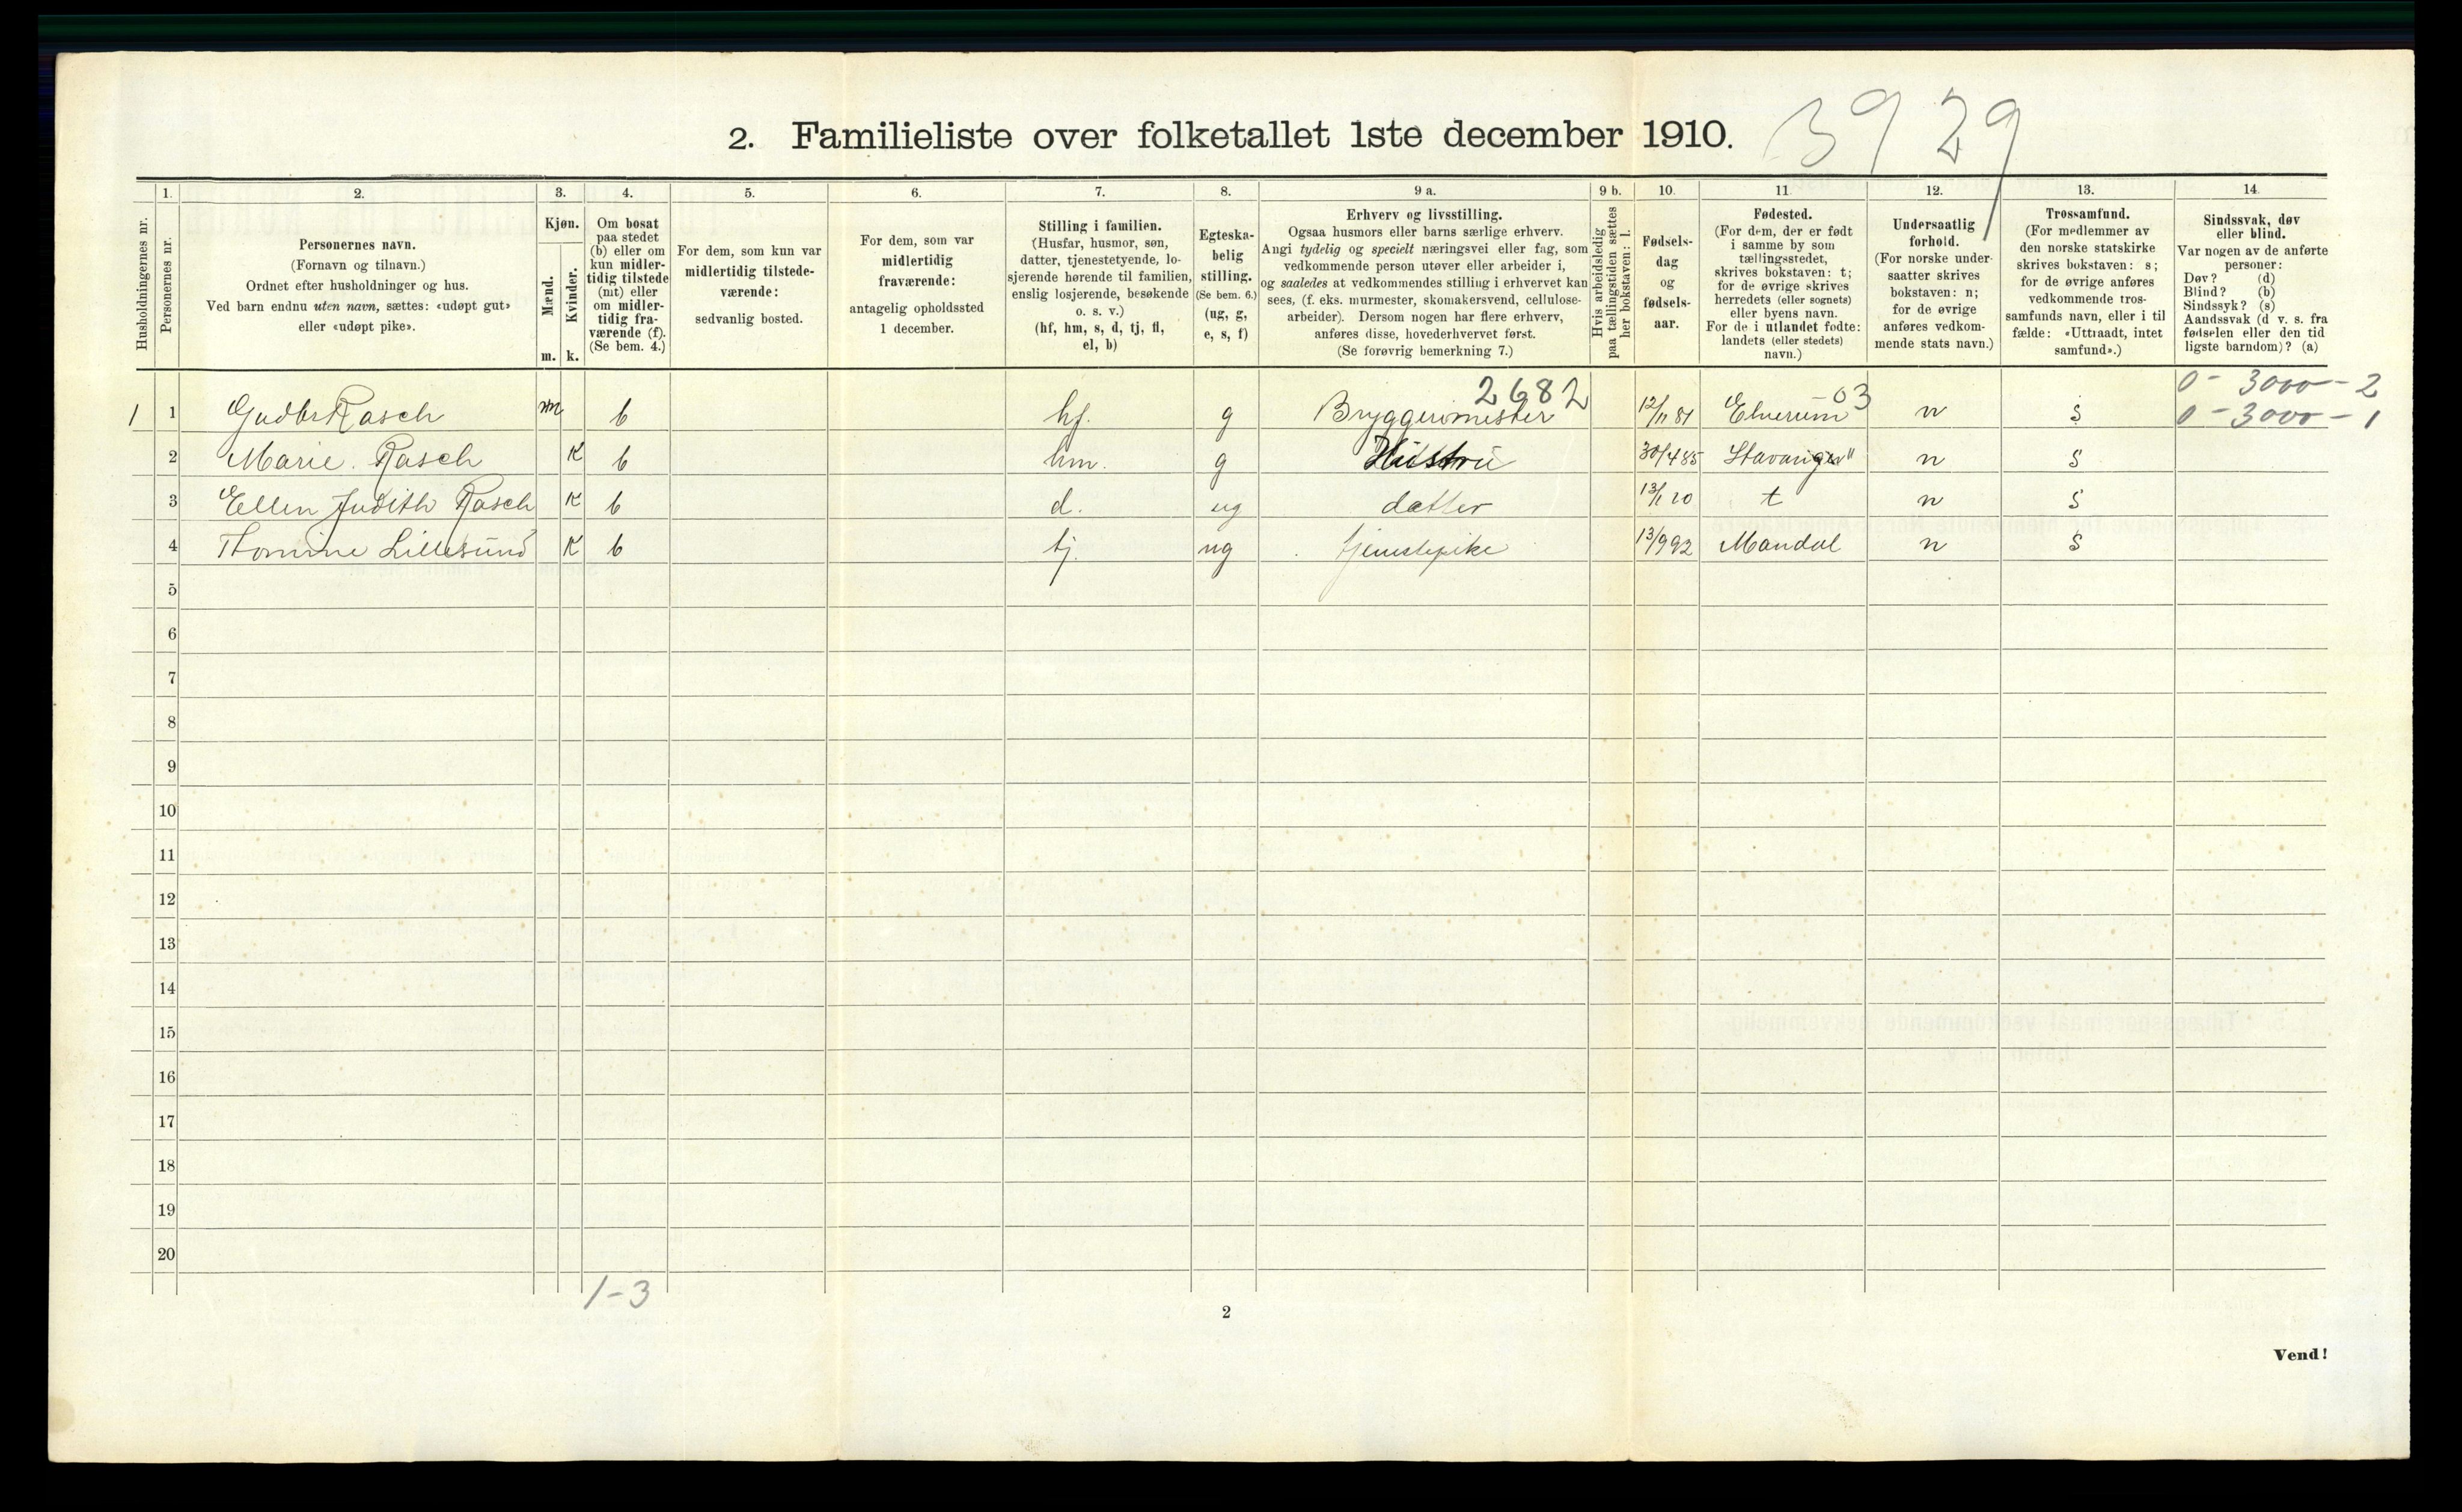 3929
2. Familieliste over folketallet 1ste december 1910.
1. 2. 3. 4. 5. 6. 7. 8. 9 a. 9 b. 10. 11. 12. 13. 14.
Husholdningernes nr.
Personernes nr.
Personernes navn.
(Fornavn og tilnavn.)
Ordnet efter husholdninger og hus.
Ved barn endnu uten navn, sættes: «udøpt gut»
eller «udøpt pike».
Kjøn.
Mænd.
m.
Kvinder.
k.
Om bosat
paa stedet
(b) eller om
kun midler-
tidig tilstede
(mt) eller
om midler-
tidig fra-
værende (f).
(Se bem. 4.)
For dem, som kun var
midlertidig tilstede-
værende:
sedvanlig bosted.
For dem, som var
midlertidig
fraværende:
antagelig opholdssted
1 december.
Stilling i familien.
(Husfar, husmor, søn,
datter, tjenestetyende, lo-
sjerende hørende til familien,
enslig losjerende, besøkende
o. s. v.)
(hf, hm, s, d, tj, fl,
el, b)
Egteska-
belig
stilling.
(Se bem. 6.)
(ug, g,
e, s, f)
Erhverv og livsstilling.
Ogsaa husmors eller barns særlige erhverv.
Angi tydelig og specielt næringsvei eller fag, som
vedkommende person utøver eller arbeider i,
og saaledes at vedkommendes stilling i erhvervet kan
sees, (f. eks. murmester, skomakersvend, cellulose-
arbeider). Dersom nogen har flere erhverv,
anføres disse, hovederhvervet først.
(Se forøvrig bemerkning 7.)
Hvis arbeidsledig
paa tællingstiden sættes
her bokstaven: l.
Fødsels-
dag
og
fødsels-
aar.
Fødested.
(For dem, der er født
i samme by som
tællingsstedet,
skrives bokstaven: t;
for de øvrige skrives
herredets (eller sognets)
eller byens navn.
For de i utlandet fødte:
landets (eller stedets)
navn.)
Undersaatlig
forhold.
(For norske under-
saatter skrives
bokstaven: n;
for de øvrige
anføres vedkom-
mende stats navn.)
Trossamfund.
(For medlemmer av
den norske statskirke
skrives bokstaven: s;
for de øvrige anføres
vedkommende tros-
samfunds navn, eller i til
fælde: «Uttraadt, intet
samfund».)
Sindssvak, døv
eller blind.
Var nogen av de anførte
personer:
Døv? (d)
Blind? (b)
Sindssyk? (s)
Aandssvak (d v. s. fra
fødselen eller den tid
ligste barndom)? (a)
2682 03 0 - 3000 - 2
1 1 Rasch m b hf. g Bryggerimester 12/11 81 Elverum n s 0 - 3000 - 1
2 Marie. Rasch K b hm. g Hustru 30/4 85 Stavanger n s
3 Ellen Judith Rasch K b d. ug datter 13/1 10 t n s
4 Thomine Lillesund K b tj. ug tjenestepike 13/9 92 Mandal n s
5
6
7
8
9
10
11
12
13
14
15
16
17
18
19
20
1-3
2
Vend!